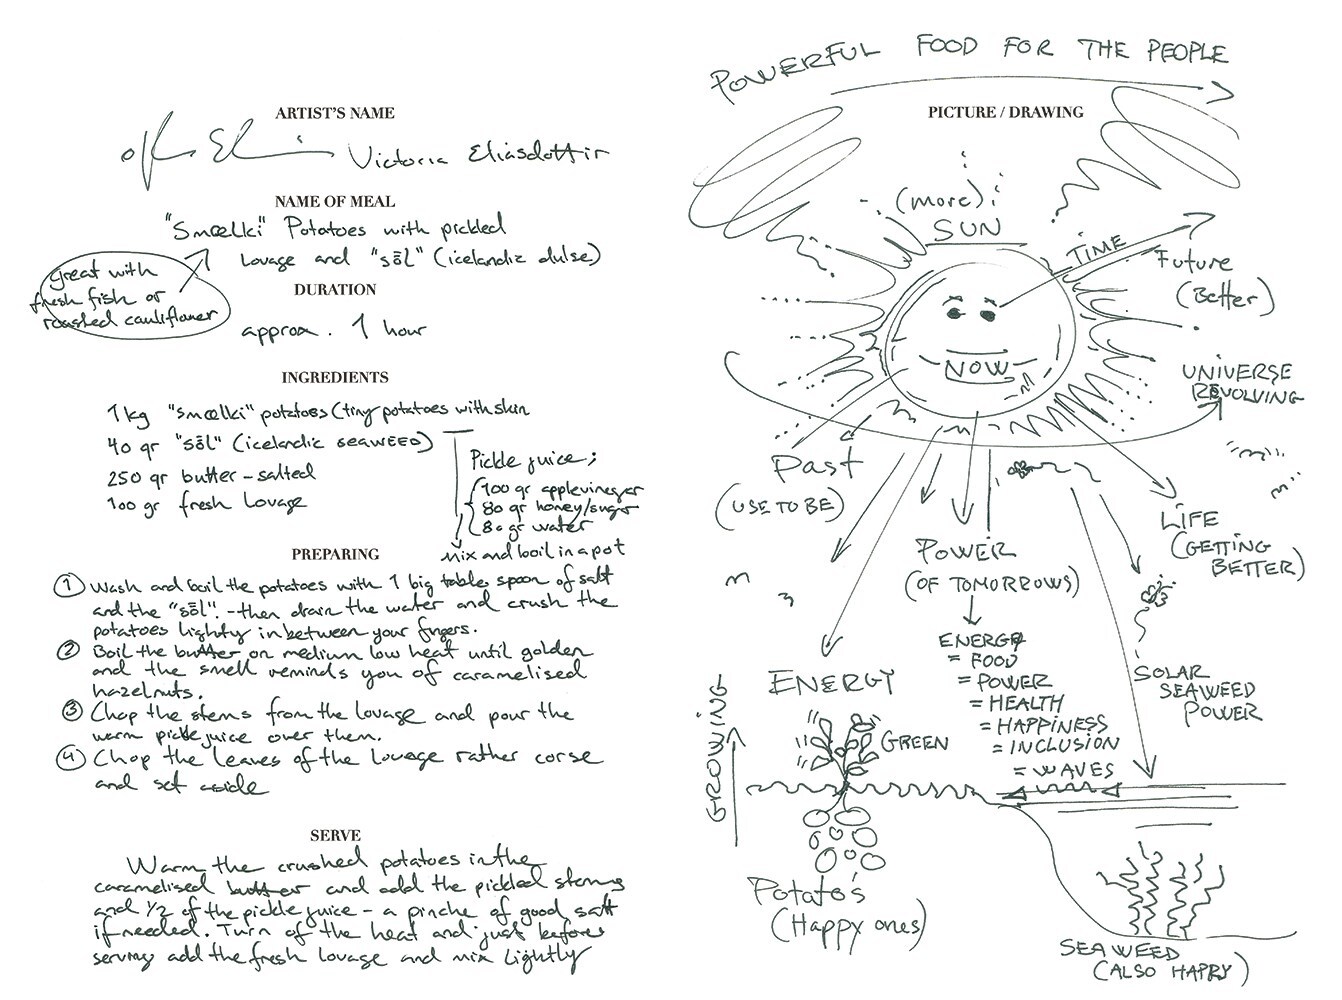 ARTIST'S NAME
Victoria Eliasdottir
NAME OF MEAL
"Smælki" Potatoes with pickled
lovage and "söl" (icelandic dulse)
great with
fresh fish or
roasted cauliflower
DURATION
approx. 1 hour
INGREDIENTS
1 kg "smælki" potatoes (tiny potatoes with skin
40 gr "söl" (icelandic SEAWEED)
250 gr butter - salted
100 gr fresh lovage
Pickle juice;
100 gr applevineger
80 gr honey/sugar
80 gr water
mix and boil in a pot
PREPARING
1 Wash and boil the potatoes with 1 big table spoon of salt
and the "söl". - then drain the water and crush the
potatoes lightly in between your fingers.
2 Boil the butter on medium low heat until golden
and the smell reminds you of caramelised
hazelnuts.
3 Chop the stems from the lovage and pour the
warm pickle juice over them.
4 Chop the leaves of the lovage rather corse
and set aside
SERVE
Warm the crushed potatoes in the
caramelised butter and add the pickled stems
and 1/2 of the pickle juice - a pinche of good salt
if needed. Turn of the heat and just before
serving add the fresh lovage and mix lightly
POWERFUL FOOD FOR THE PEOPLE
PICTURE / DRAWING
(more)
SUN
TIME
Future
(Better)
NOW
UNIVERSE
REVOLVING
Past
(USE TO BE)
LIFE
(GETTING
BETTER)
POWER
(OF TOMORROWS)
ENERGY
= FOOD
= POWER
= HEALTH
= HAPPINESS
= INCLUSION
= WAVES
SOLAR
SEAWEED
POWER
ENERGY
GREEN
GROWING
Potato's
(Happy ones)
SEAWEED
(ALSO HAPPY)